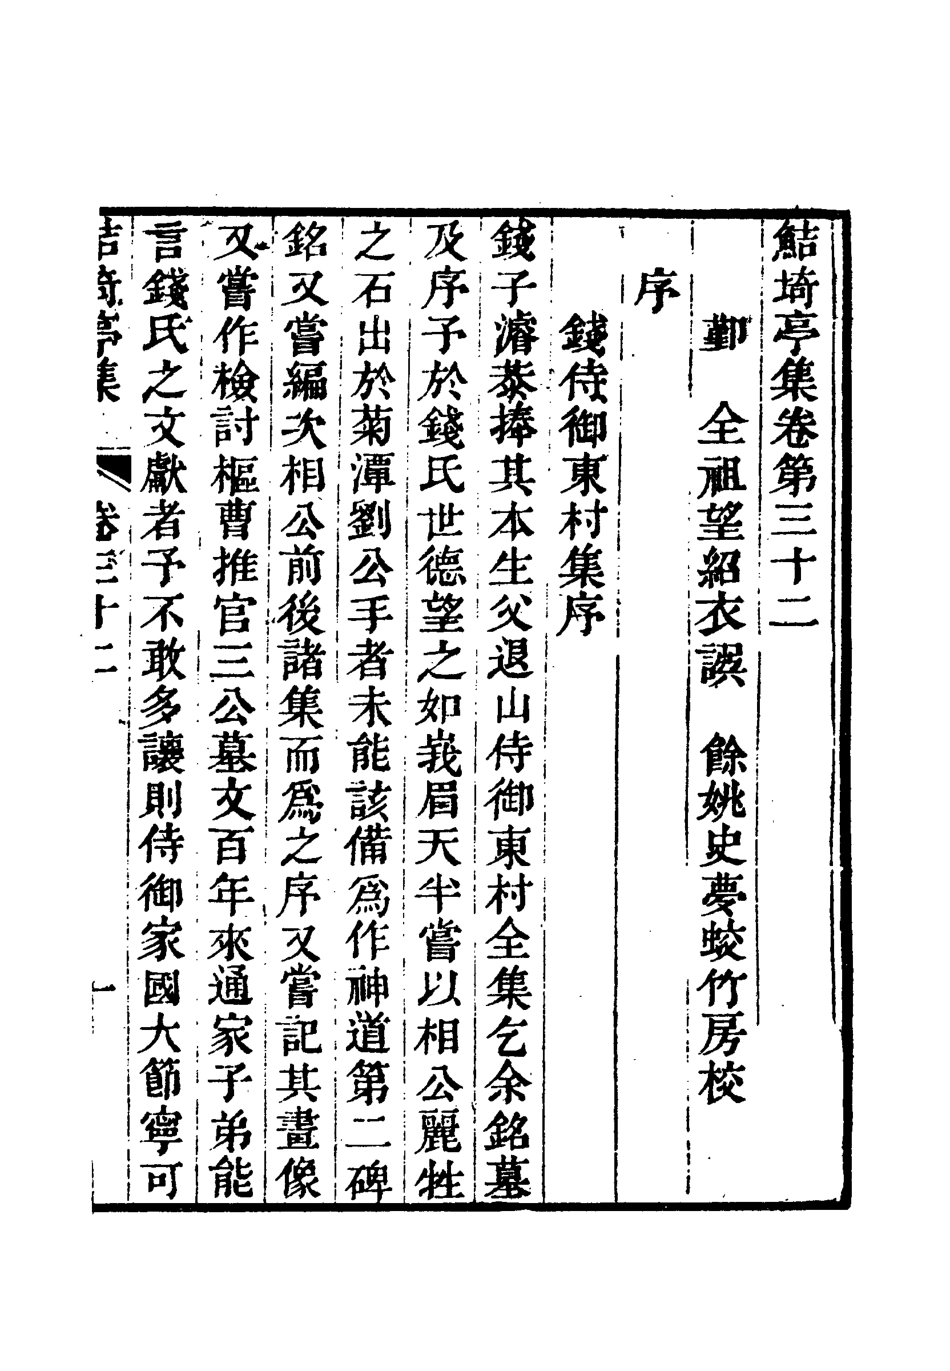 鮚埼亭集卷第三十二
鄞　全祖望紹衣譔　餘姚史夢蛟竹房校
序
錢侍御東村集序
錢子濬恭捧其本生父退山侍御東村全集乞余銘墓
及序予於錢氏世德望之如峩眉天半嘗以相公麗牲
之石出於菊潭劉公手者未能該備爲作神道第二碑
銘又嘗編次相公前後諸集而爲之序又嘗記其畫像
又嘗作檢討樞曹推官三公墓文百年來通家子弟能
言錢氏之文獻者予不敢多讓則侍御家國大節寧可
鮚埼亭集　卷三十二　一